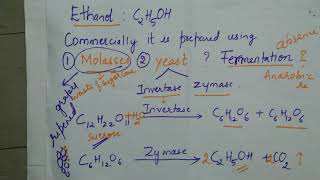 Ethanol : C2H5OH
Commercially it is prepared using
absence
① Molasses ② yeast ? Fermentation ?
waste of sugarcane
Anaerobic
Invertase zymase.
grapes
Invertase
C12H22O11 + H2O → C6H12O6 + C6H12O6
sucrose
C6H12O6 Zymase → 2C2H5OH + 2CO2 ↑